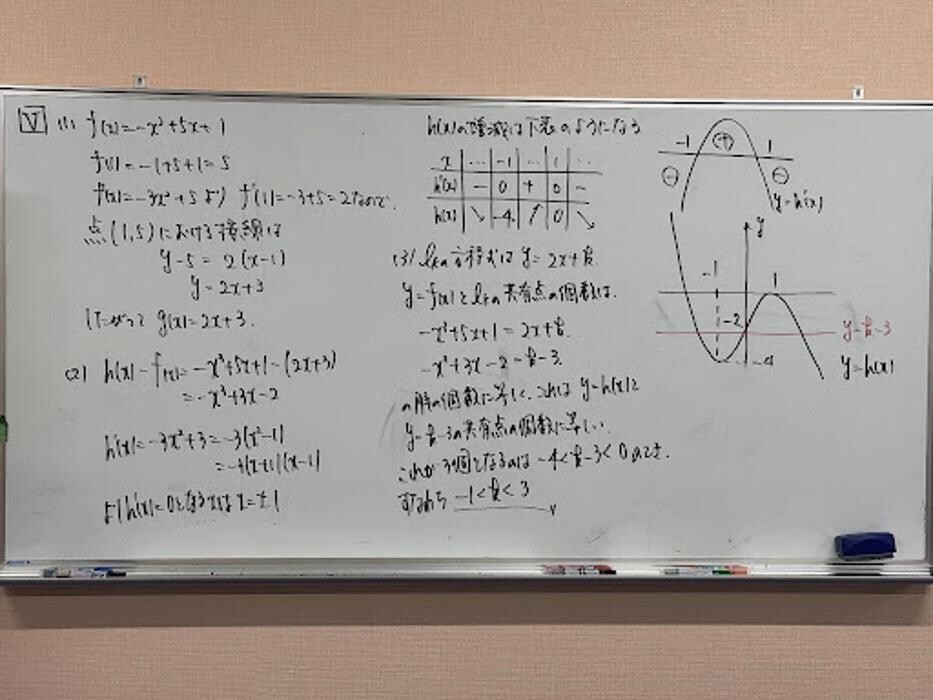 V (1) f(x)=-x³+5x+1
f(1)=-1+5+1=5
f'(x)=-3x²+5より f'(1)=-3+5=2なので、
点(1,5)における接線は
y-5=2(x-1)
y=2x+3
したがって g(x)=2x+3.
(2) h(x)=f(x)=-x³+5x+1-(2x+3)
=-x³+3x-2
h'(x)=-3x²+3=-3(x²-1)
=-3(x+1)(x-1)
よりh'(x)=0となるxはx=±1
h(x)の増減は下表のようになる
x … -1 … 1 …
h'(x) - 0 + 0 -
h(x) ↘ -4 ↗ 0 ↘
(3) lkの方程式は y=2x+k.
y=f(x)とlkの共有点の個数は、
-x³+5x+1=2x+k
-x³+3x-2=k-3
の解の個数に等しく、これは y=h(x)と
y=k-3の共有点の個数に等しい.
これが3個となるのは -4<k-3<0のとき.
すなわち -1<k<3
-1 (+) 1
⊖ ⊖
y=h'(x)
y
-1 1
-2
y=k-3
-4
y=h(x)